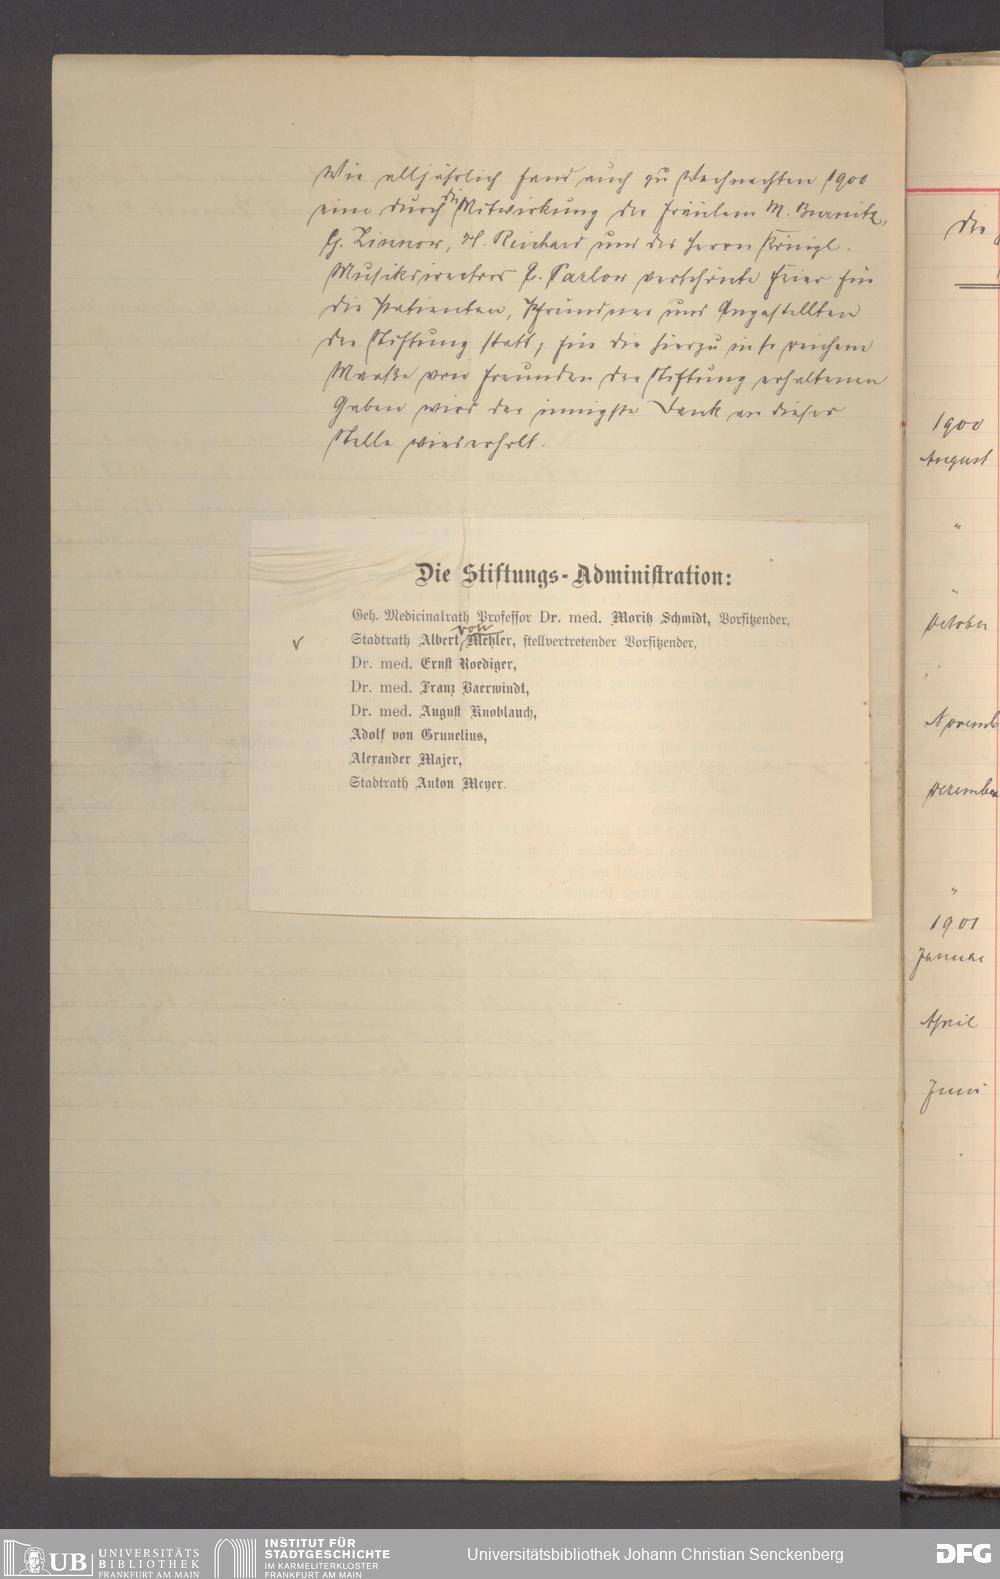 Wie alljährlich fand auch zu Weihnachten 1900
eine durch die Mitwirkung der Fräulein M. Burnitz,
G. Zinnow, H. Reichard und des Herrn Königl.
Musikdirectors E. Parlow verschönte Feier für
die Patienten, Pfründner und Angestellten
der Stiftung statt; für die hierzu in so reichem
Maaße von Freunden der Stiftung erhaltenen
Gaben wird der innigste Dank an dieser
Stelle wiederholt.
Die Stiftungs-Administration:
Geh. Medicinalrath Professor Dr. med. Moritz Schmidt, Vorsitzender,
Stadtrath Albert von Metzler, stellvertretender Vorsitzender,
Dr. med. Ernst Roediger,
Dr. med. Franz Baerwindt,
Dr. med. August Knoblauch,
Adolf von Grunelius,
Alexander Majer,
Stadtrath Anton Meyer.
1900
August
"
"
October
"
Novemb
Dezember
"
1901
Januar
April
Juni
UB UNIVERSITÄTS
BIBLIOTHEK
FRANKFURT AM MAIN
INSTITUT FÜR
STADTGESCHICHTE
IM KARMELITERKLOSTER
FRANKFURT AM MAIN
Universitätsbibliothek Johann Christian Senckenberg
DFG